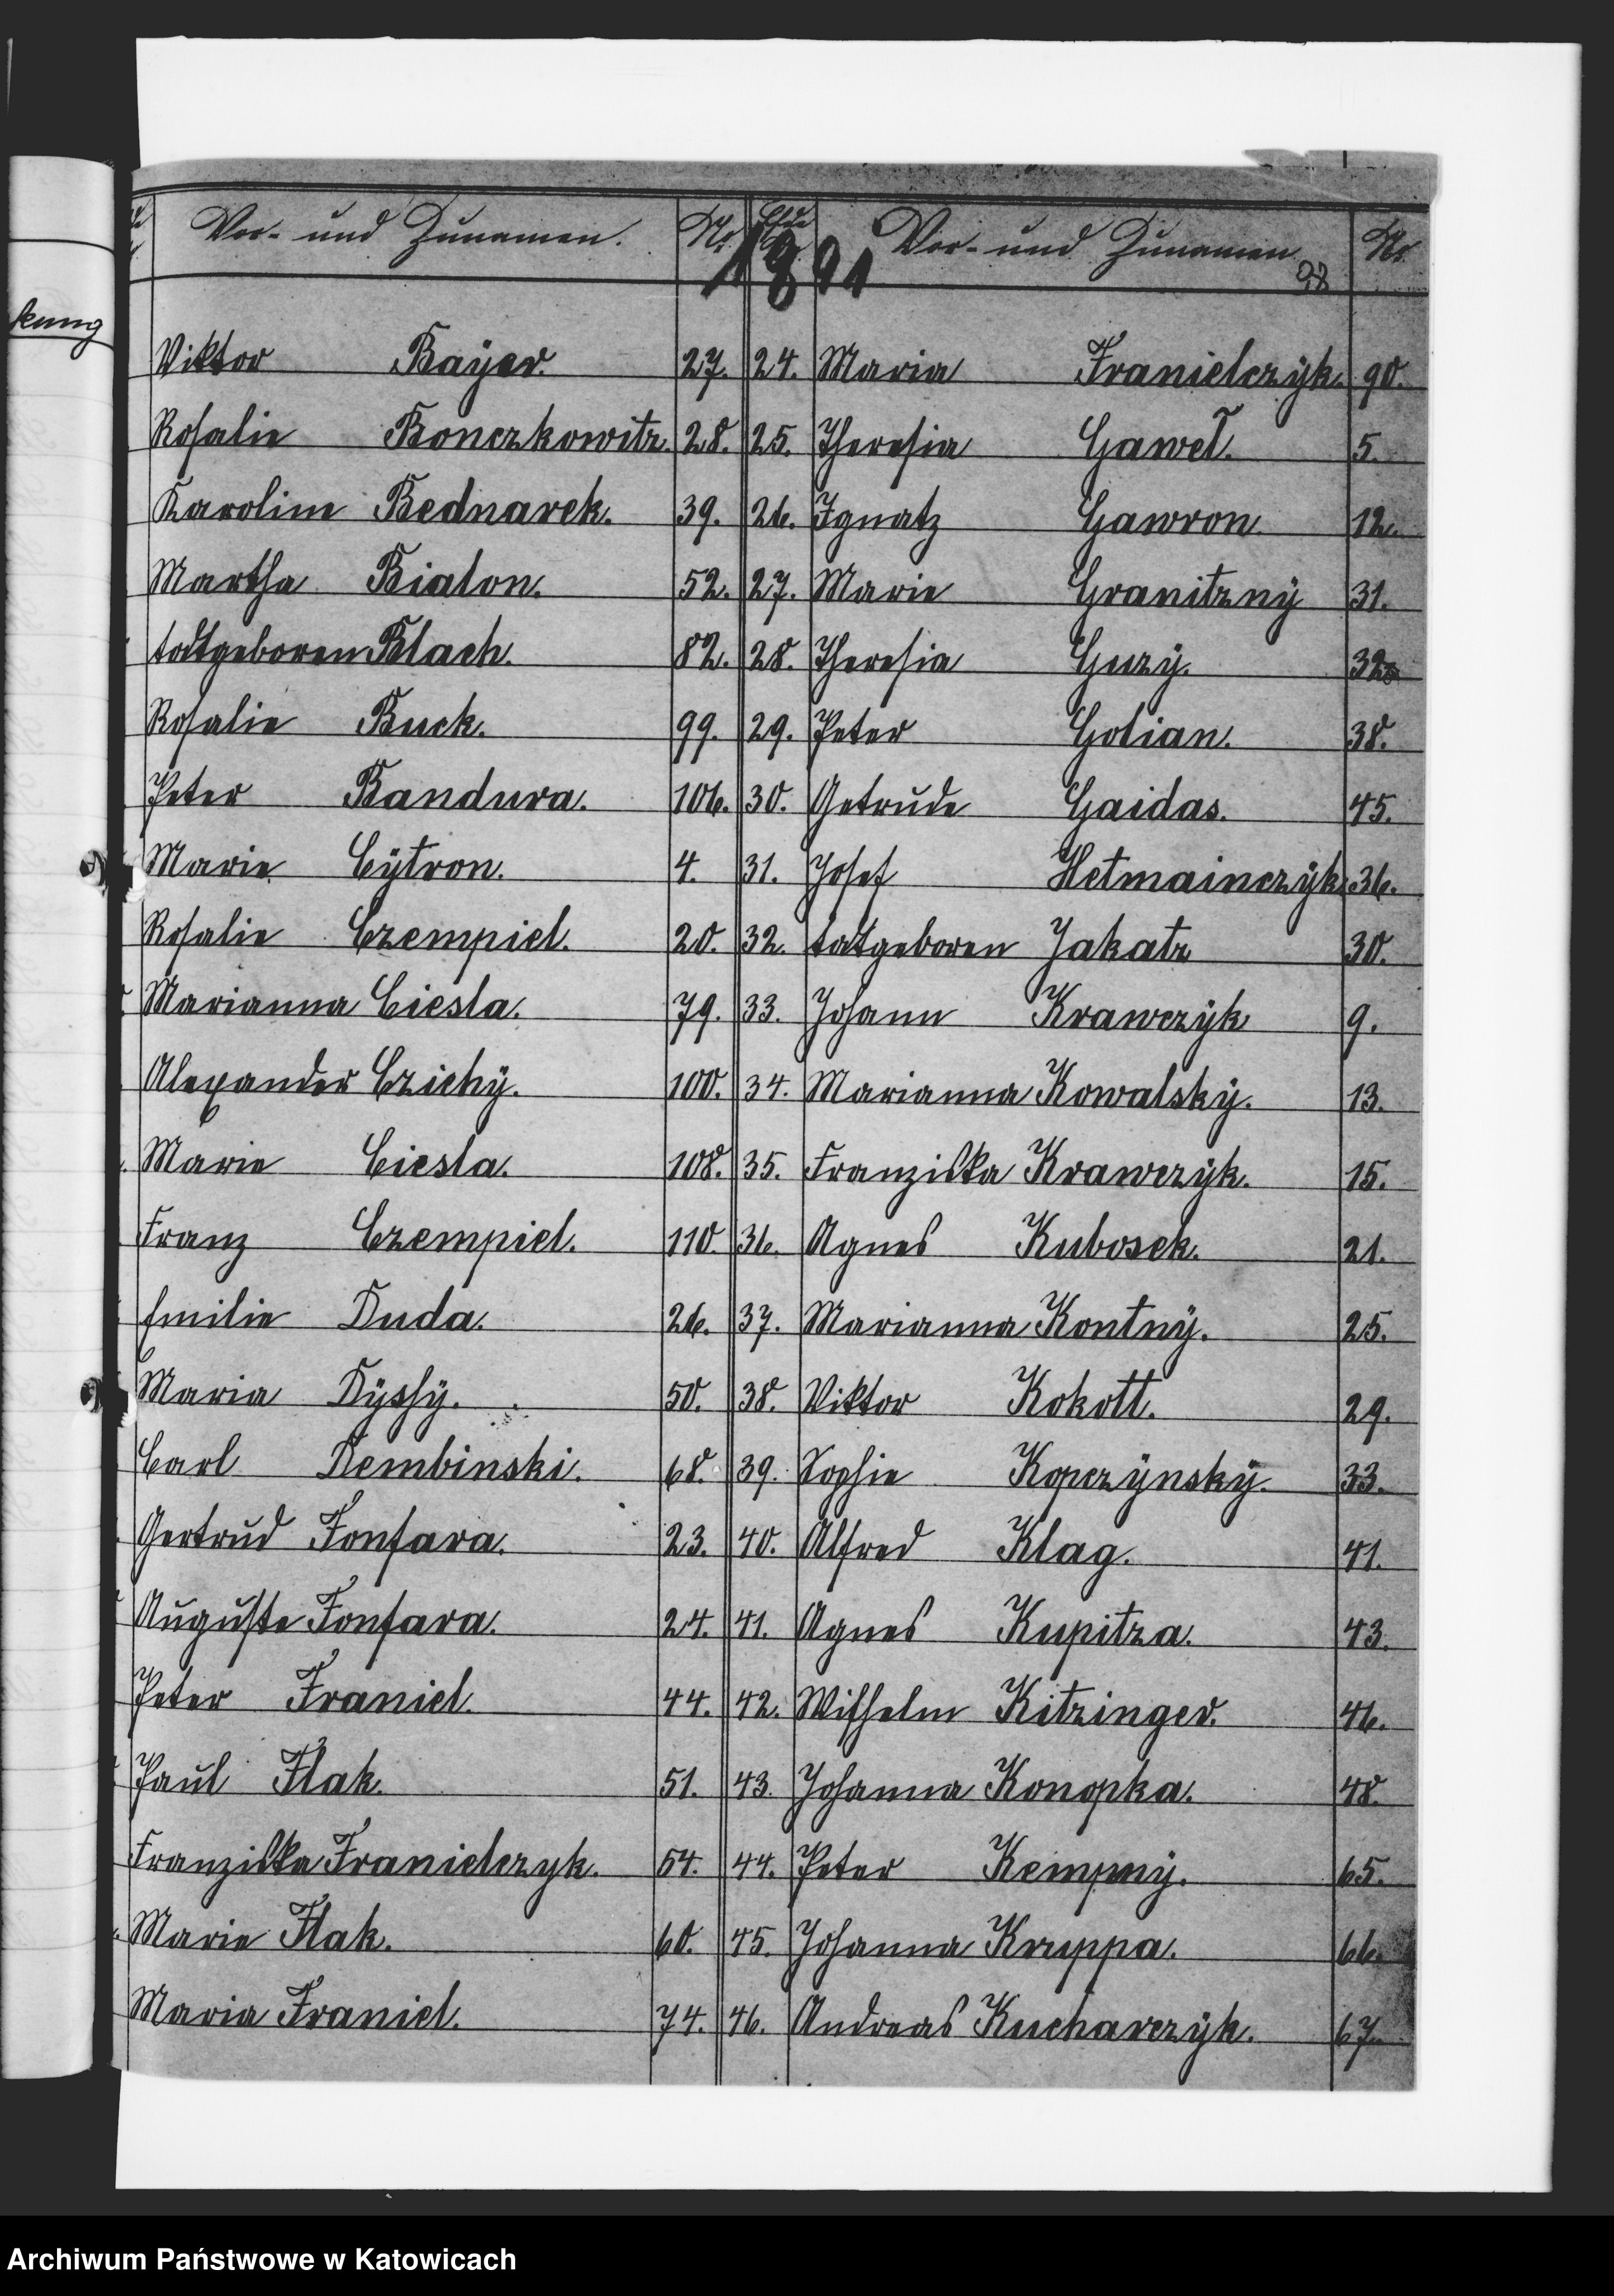 kung
Vor- und Zunamen. Nr.
1891
Viktor Bayer. 27.
Rosalie Bonczkowitz. 28.
Karoline Bednarek. 39.
Martha Bialon. 52.
todtgeboren Blach. 82.
Rosalie Buck. 99.
Peter Bandura. 106.
Marie Cÿtron. 4.
Rosalie Czempiel. 20.
Marianna Ciesla. 79.
Alexander Czichÿ. 100.
Marie Ciesla. 108.
Franz Czempiel. 110.
Emilie Duda. 26.
Maria Dÿssÿ. 50.
Carl Dembinski. 68.
Gertrud Fonfara. 23.
Auguste Fonfara. 24.
Peter Franiel. 44.
Paul Flak. 51.
Franziska Franielczyk. 54.
Marie Flak. 60.
Maria Franiel. 74.
Vor- und Zunamen Nr.
98
24. Maria Franielczyk. 90.
25. Theresia Gaweł. 5.
26. Ignatz Gawron. 12.
27. Marie Granitznÿ 31.
28. Theresia Guzÿ. 32.
29. Peter Golian. 38.
30. Getrude Gaidas. 45.
31. Josef Hetmainczÿk. 36.
32. todtgeboren Jakatz 30.
33. Johann Krawczÿk 9.
34. Marianna Kowalskÿ. 13.
35. Franziska Krawczÿk. 15.
36. Agnes Kubosek. 21.
37. Marianna Kontnÿ. 25.
38. Viktor Kokott. 29.
39. Sophie Kopczÿnskÿ. 33.
40. Alfred Klag. 41.
41. Agnes Kupitza. 43.
42. Wilhelm Kitzinger. 46.
43. Johanna Konopka. 48.
44. Peter Kempnÿ. 65.
45. Johanna Kruppa. 66.
46. Andreas Kucharczÿk. 67.
Archiwum Państwowe w Katowicach